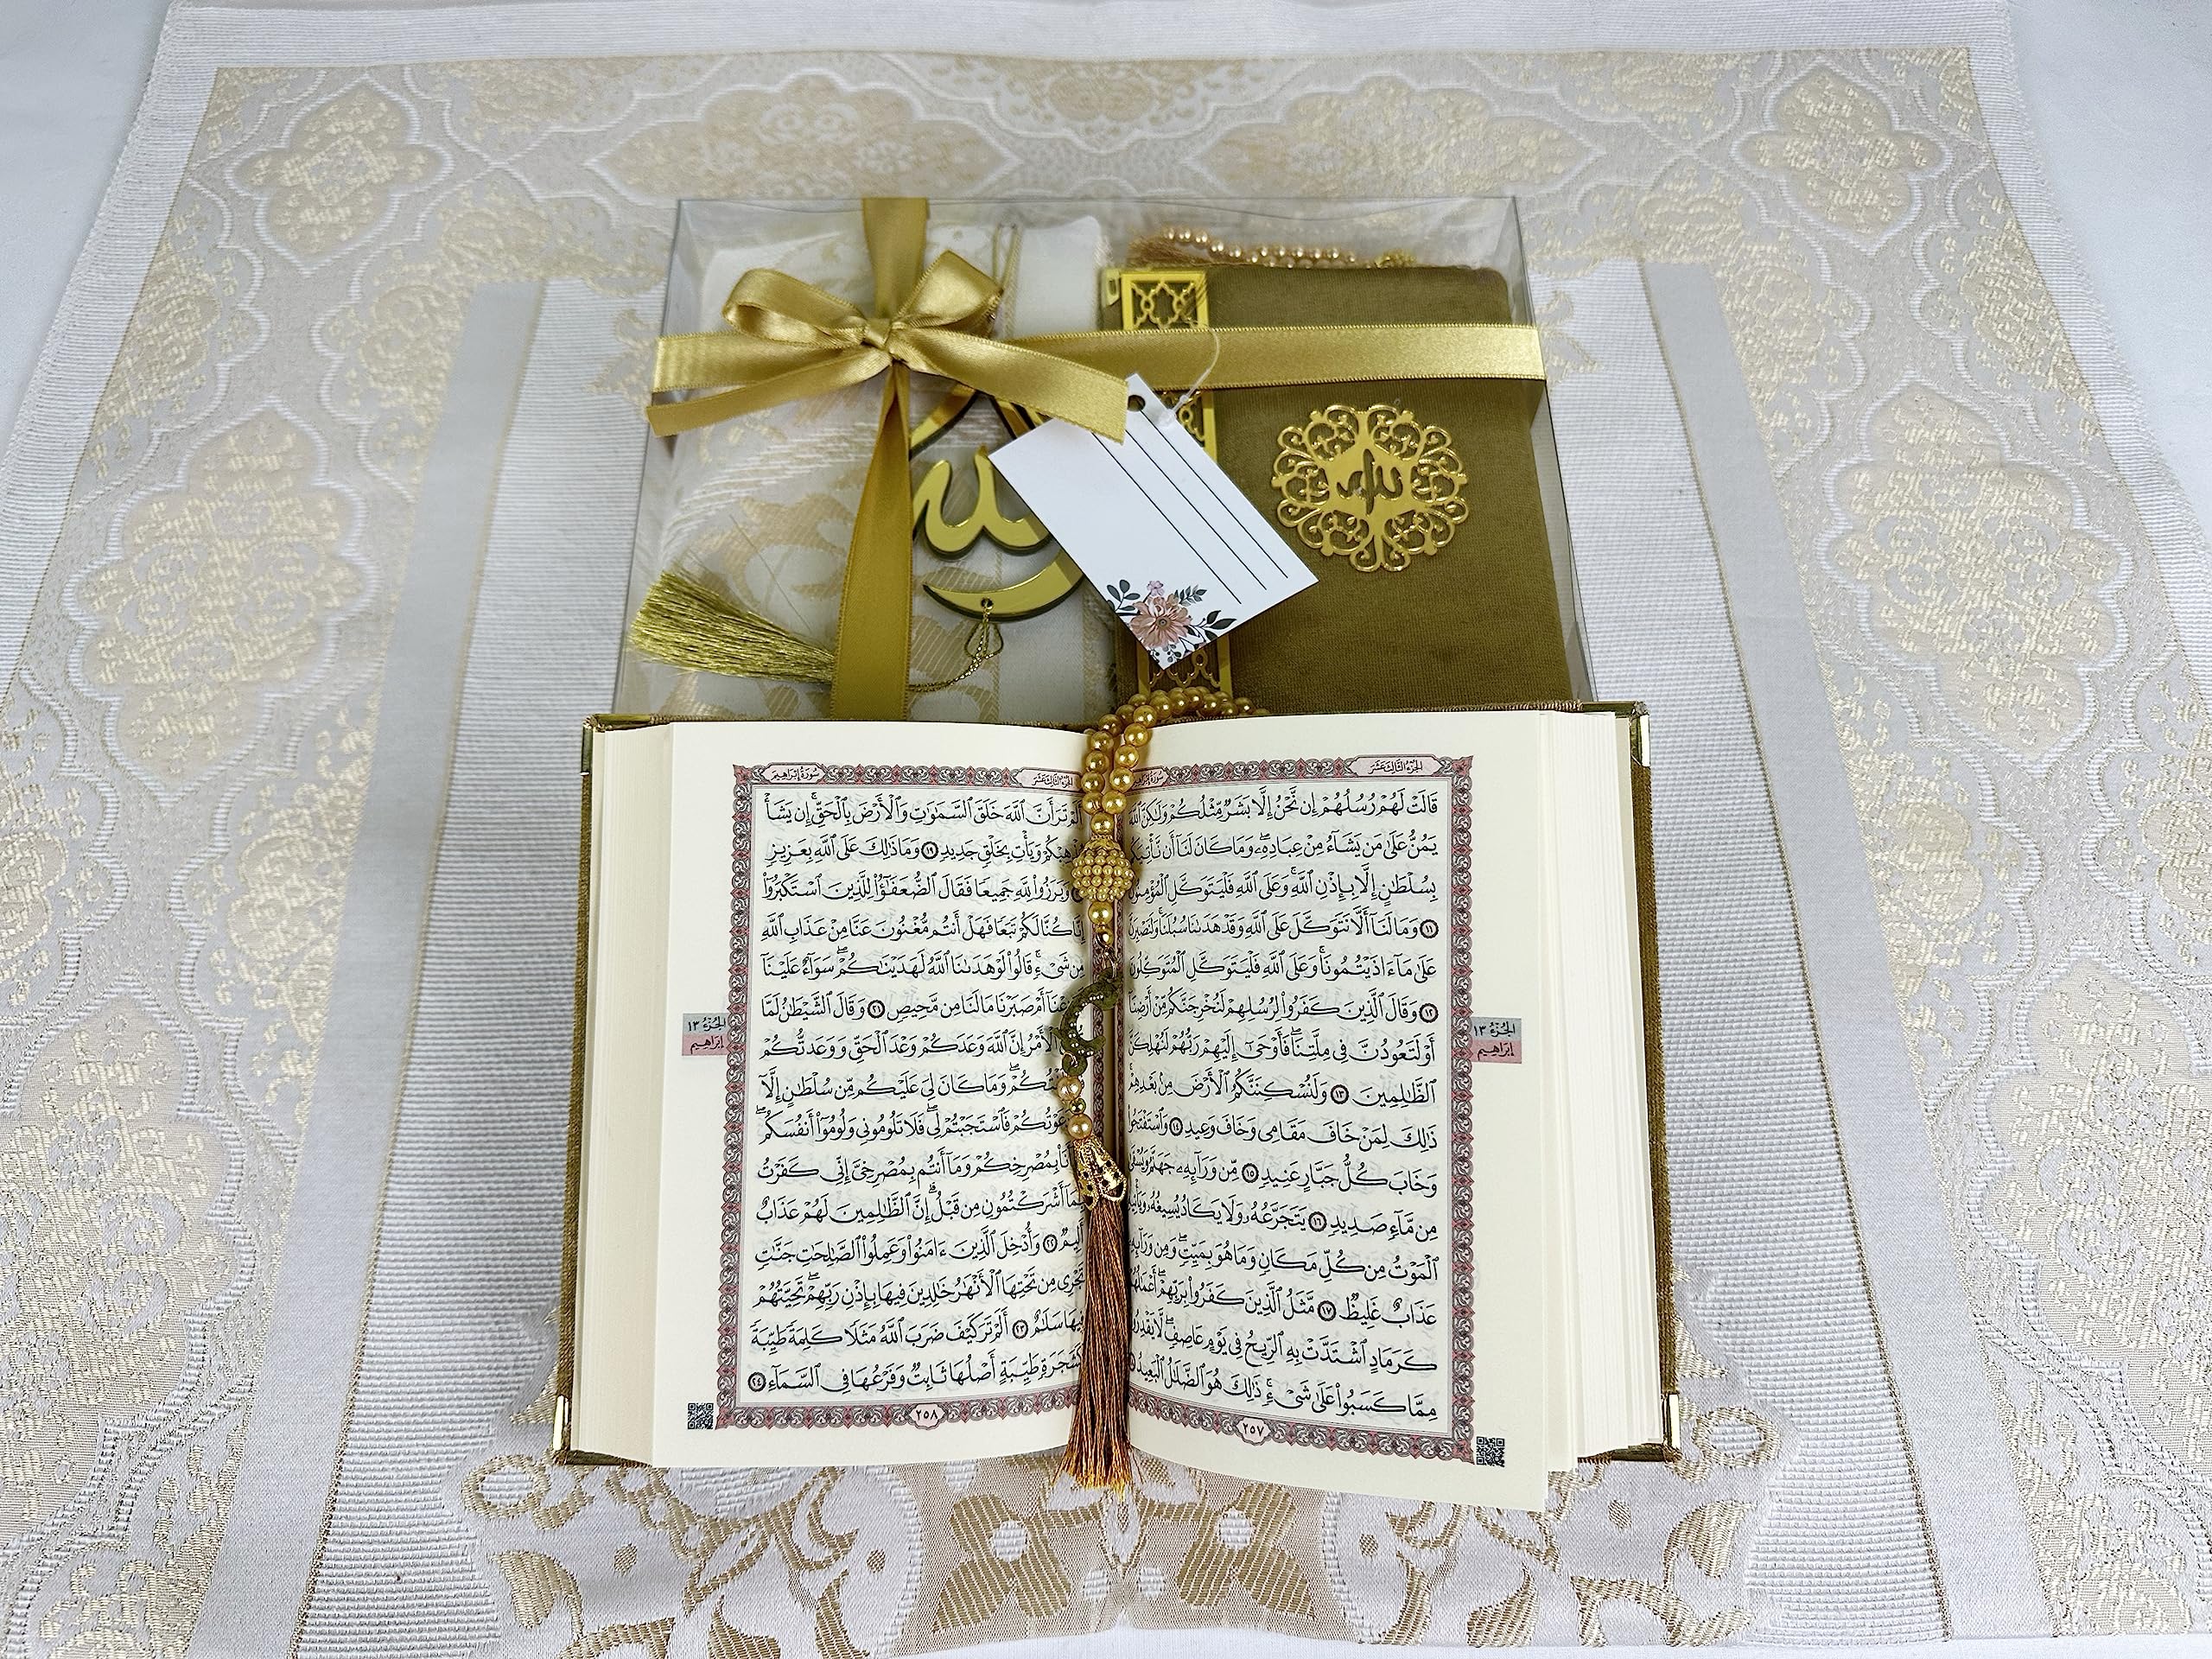 الله
الله
الجزء الثالث عشر
سورة إبراهيم
قَالَتْ لَهُمْ رُسُلُهُمْ إِن نَّحْنُ إِلَّا بَشَرٌ مِّثْلُكُمْ وَلَٰكِنَّ ٱللَّهَ
يَمُنُّ عَلَىٰ مَن يَشَآءُ مِنْ عِبَادِهِۦ ۖ وَمَا كَانَ لَنَآ أَن نَّأْتِيَكُم
بِسُلْطَٰنٍ إِلَّا بِإِذْنِ ٱللَّهِ ۚ وَعَلَى ٱللَّهِ فَلْيَتَوَكَّلِ ٱلْمُؤْمِنُونَ
١١ وَمَا لَنَآ أَلَّا نَتَوَكَّلَ عَلَى ٱللَّهِ وَقَدْ هَدَىٰنَا سُبُلَنَا ۚ وَلَنَصْبِرَنَّ
عَلَىٰ مَآ ءَاذَيْتُمُونَا ۚ وَعَلَى ٱللَّهِ فَلْيَتَوَكَّلِ ٱلْمُتَوَكِّلُونَ
١٢ وَقَالَ ٱلَّذِينَ كَفَرُوا۟ لِرُسُلِهِمْ لَنُخْرِجَنَّكُم مِّنْ أَرْضِنَآ
أَوْ لَتَعُودُنَّ فِى مِلَّتِنَا ۖ فَأَوْحَىٰٓ إِلَيْهِمْ رَبُّهُمْ لَنُهْلِكَنَّ
ٱلظَّٰلِمِينَ ١٣ وَلَنُسْكِنَنَّكُمُ ٱلْأَرْضَ مِنۢ بَعْدِهِمْ ۚ
ذَٰلِكَ لِمَنْ خَافَ مَقَامِى وَخَافَ وَعِيدِ ١٤ وَٱسْتَفْتَحُوا۟
وَخَابَ كُلُّ جَبَّارٍ عَنِيدٍ ١٥ مِّن وَرَآئِهِۦ جَهَنَّمُ وَيُسْقَىٰ
مِن مَّآءٍ صَدِيدٍ ١٦ يَتَجَرَّعُهُۥ وَلَا يَكَادُ يُسِيغُهُۥ وَيَأْتِيهِ
ٱلْمَوْتُ مِن كُلِّ مَكَانٍ وَمَا هُوَ بِمَيِّتٍ ۖ وَمِن وَرَآئِهِۦ
عَذَابٌ غَلِيظٌ ١٧ مَّثَلُ ٱلَّذِينَ كَفَرُوا۟ بِرَبِّهِمْ ۖ أَعْمَٰلُهُمْ
كَرَمَادٍ ٱشْتَدَّتْ بِهِ ٱلرِّيحُ فِى يَوْمٍ عَاصِفٍ ۖ لَّا يَقْدِرُونَ
مِمَّا كَسَبُوا۟ عَلَىٰ شَىْءٍ ۚ ذَٰلِكَ هُوَ ٱلضَّلَٰلُ ٱلْبَعِيدُ
٢٥٧
الجزء ١٣
إبراهيم
الجزء الثالث عشر
سورة إبراهيم
أَلَمْ تَرَ أَنَّ ٱللَّهَ خَلَقَ ٱلسَّمَٰوَٰتِ وَٱلْأَرْضَ بِٱلْحَقِّ ۚ إِن يَشَأْ
يُذْهِبْكُمْ وَيَأْتِ بِخَلْقٍ جَدِيدٍ ١٩ وَمَا ذَٰلِكَ عَلَى ٱللَّهِ بِعَزِيزٍ
وَبَرَزُوا۟ لِلَّهِ جَمِيعًا فَقَالَ ٱلضُّعَفَٰٓؤُا۟ لِلَّذِينَ ٱسْتَكْبَرُوٓا۟
إِنَّا كُنَّا لَكُمْ تَبَعًا فَهَلْ أَنتُم مُّغْنُونَ عَنَّا مِنْ عَذَابِ ٱللَّهِ
مِن شَىْءٍ ۚ قَالُوا۟ لَوْ هَدَىٰنَا ٱللَّهُ لَهَدَيْنَٰكُمْ ۖ سَوَآءٌ عَلَيْنَآ
أَجَزِعْنَآ أَمْ صَبَرْنَا مَا لَنَا مِن مَّحِيصٍ ٢١ وَقَالَ ٱلشَّيْطَٰنُ لَمَّا
ٱلْأَمْرُ إِنَّ ٱللَّهَ وَعَدَكُمْ وَعْدَ ٱلْحَقِّ وَوَعَدتُّكُمْ
فَأَخْلَفْتُكُمْ ۖ وَمَا كَانَ لِىَ عَلَيْكُم مِّن سُلْطَٰنٍ إِلَّآ
دَعَوْتُكُمْ فَٱسْتَجَبْتُمْ لِى ۖ فَلَا تَلُومُونِى وَلُومُوٓا۟ أَنفُسَكُم ۖ
أَنَا۠ بِمُصْرِخِكُمْ وَمَآ أَنتُم بِمُصْرِخِىَّ ۖ إِنِّى كَفَرْتُ
بِمَآ أَشْرَكْتُمُونِ مِن قَبْلُ ۗ إِنَّ ٱلظَّٰلِمِينَ لَهُمْ عَذَابٌ
أَلِيمٌ ٢٢ وَأُدْخِلَ ٱلَّذِينَ ءَامَنُوا۟ وَعَمِلُوا۟ ٱلصَّٰلِحَٰتِ جَنَّٰتٍ
تَجْرِى مِن تَحْتِهَا ٱلْأَنْهَٰرُ خَٰلِدِينَ فِيهَا بِإِذْنِ رَبِّهِمْ ۖ تَحِيَّتُهُمْ
فِيهَا سَلَٰمٌ ٢٣ أَلَمْ تَرَ كَيْفَ ضَرَبَ ٱللَّهُ مَثَلًا كَلِمَةً طَيِّبَةً
كَشَجَرَةٍ طَيِّبَةٍ أَصْلُهَا ثَابِتٌ وَفَرْعُهَا فِى ٱلسَّمَآءِ ٢٤
٢٥٨
الجزء ١٣
إبراهيم